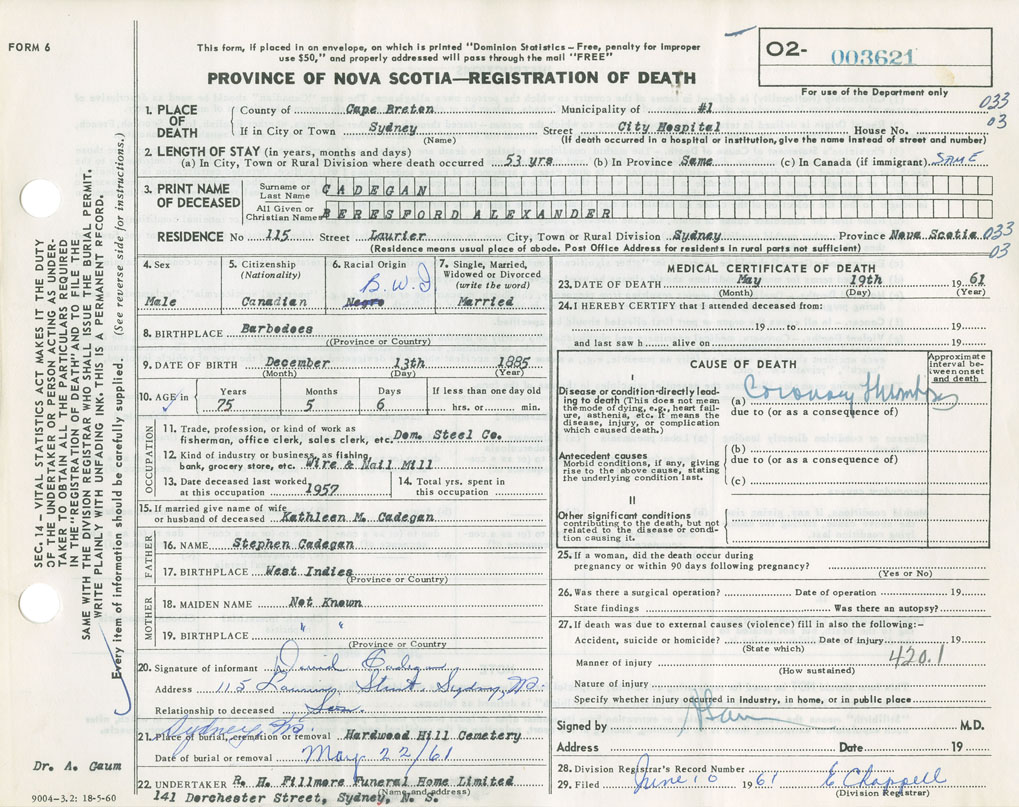 FORM 6
This form, if placed in an envelope, on which is printed "Dominion Statistics – Free, penalty for improper
use $50," and properly addressed will pass through the mail "FREE"
PROVINCE OF NOVA SCOTIA—REGISTRATION OF DEATH
O2- 003621
For use of the Department only
SEC. 14 – VITAL STATISTICS ACT MAKES IT THE DUTY
OF THE UNDERTAKER OR PERSON ACTING AS UNDER-
TAKER TO OBTAIN ALL THE PARTICULARS REQUIRED
IN THE "REGISTRATION OF DEATH" AND TO FILE THE
SAME WITH THE DIVISION REGISTRAR WHO SHALL ISSUE THE BURIAL PERMIT.
WRITE PLAINLY WITH UNFADING INK. THIS IS A PERMANENT RECORD.
Every item of information should be carefully supplied. (See reverse side for instructions.)
1. PLACE OF DEATH
County of Cape Breton Municipality of #1 033
If in City or Town Sydney Street City Hospital House No. 03
(Name) (If death occurred in a hospital or institution, give the name instead of street and number)
2. LENGTH OF STAY (in years, months and days)
(a) In City, Town or Rural Division where death occurred 53 yrs (b) In Province Same (c) In Canada (if immigrant) SAME
3. PRINT NAME OF DECEASED
Surname or Last Name CADEGAN
All Given or Christian Names BERESFORD ALEXANDER
RESIDENCE No 115 Street Laurier City, Town or Rural Division Sydney Province Nova Scotia 033
(Residence means usual place of abode. Post Office Address for residents in rural parts not sufficient) 03
4. Sex
Male
5. Citizenship (Nationality)
Canadian
6. Racial Origin
B.W.I
Negro
7. Single, Married, Widowed or Divorced (write the word)
Married
8. BIRTHPLACE Barbadoes
((Province or Country)
9. DATE OF BIRTH December 13th 1885
(Month) (Day) (Year)
10. AGE in Years Months Days If less than one day old
75 5 6 hrs. or min.
OCCUPATION
11. Trade, profession, or kind of work as
fisherman, office clerk, sales clerk, etc. Dom. Steel Co.
12. Kind of industry or business, as fishing,
bank, grocery store, etc. Wire & Nail Mill
13. Date deceased last worked
at this occupation 1957
14. Total yrs. spent in
this occupation
15. If married give name of wife
or husband of deceased Kathleen M. Cadegan
FATHER
16. NAME Stephen Cadegan
17. BIRTHPLACE West Indies
(Province or Country)
MOTHER
18. MAIDEN NAME Not Known
19. BIRTHPLACE " "
(Province or Country
20. Signature of informant David Cadegan
Address 115 Street Sydney, N.S.
Relationship to deceased Son
Sydney, N.S.
21. Place of burial, cremation or removal Hardwood Hill Cemetery
Date of burial or removal May 22/61
22. UNDERTAKER R. H. Fillmore Funeral Home Limited
(Name and address)
141 Dorchester Street, Sydney, N. S.
Dr. A. Gaum
9004-3.2: 18-5-60
MEDICAL CERTIFICATE OF DEATH
23. DATE OF DEATH May 19th 1961
(Month) (Day) (Year)
24. I HEREBY CERTIFY that I attended deceased from:
19 to 19
and last saw h alive on 19
CAUSE OF DEATH
Approximate interval between onset and death
I
Disease or condition directly lead-
ing to death (This does not mean
the mode of dying, e.g., heart fail-
ure, asthenia, etc. It means the
disease, injury, or complication
which caused death.)
(a) Coronary Thrombosis
due to (or as a consequence of)
Antecedent causes
Morbid conditions, if any, giving
rise to the above cause, stating
the underlying condition last.
(b)
due to (or as a consequence of)
(c)
II
Other significant conditions
contributing to the death, but not
related to the disease or condi-
tion causing it.
25. If a woman, did the death occur during
pregnancy or within 90 days following pregnancy?
(Yes or No)
26. Was there a surgical operation? Date of operation 19
State findings Was there an autopsy?
27. If death was due to external causes (violence) fill in also the following:–
Accident, suicide or homicide? Date of injury 19
(State which)
420.1
Manner of injury
(How sustained)
Nature of injury
Specify whether injury occurred in industry, in home, or in public place
Signed by Gaum M.D.
Address Date 19
28. Division Registrar's Record Number
29. Filed June 1961 E Chappell
(Division Registrar)